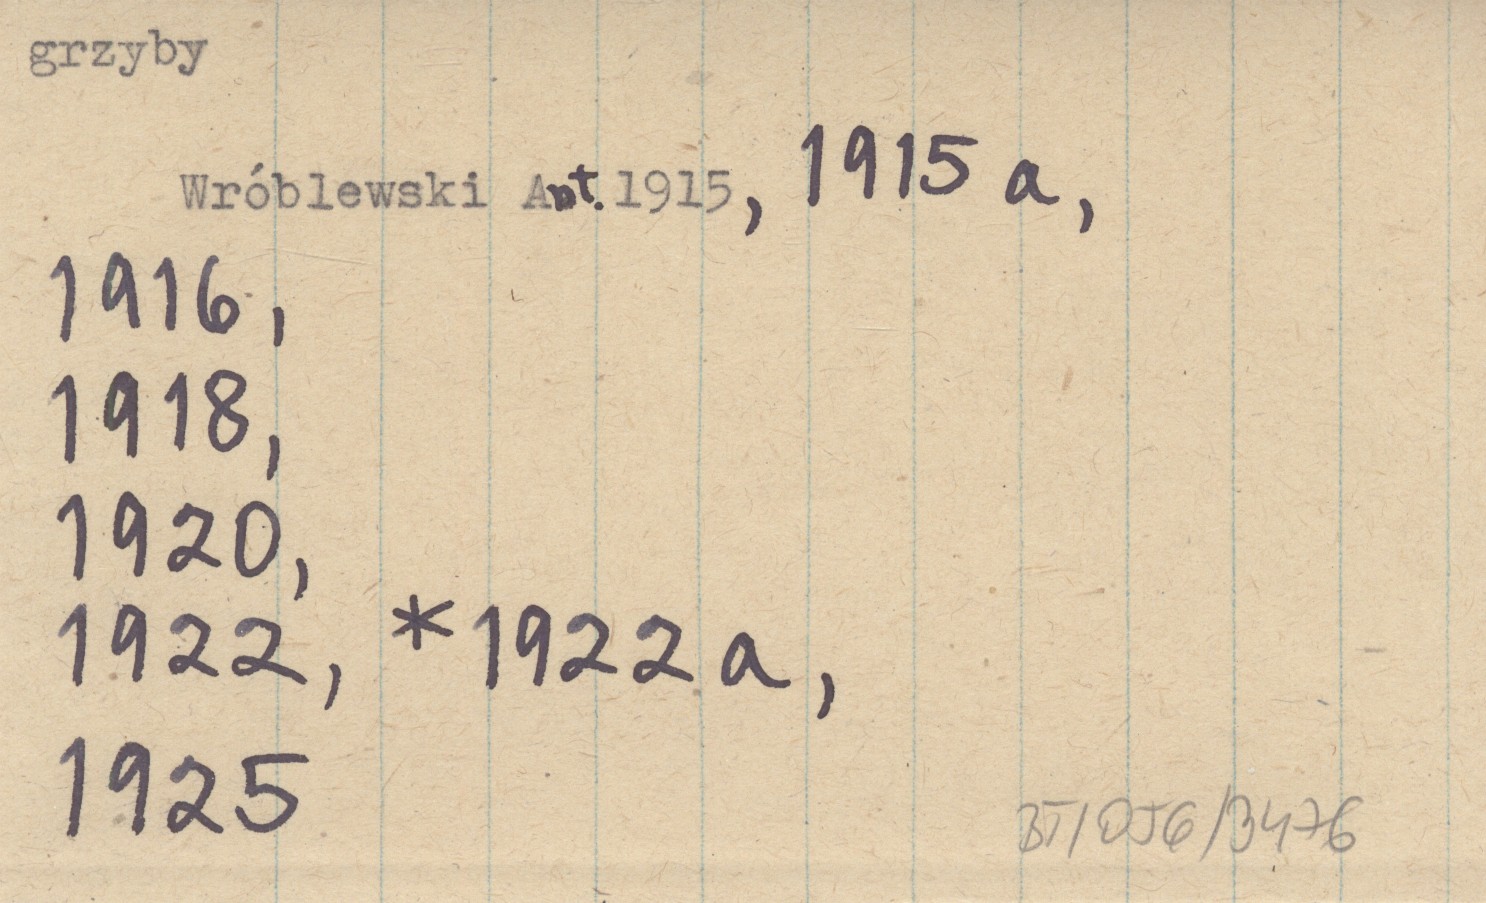 grzyby
Wróblewski Ant. 1915, 1915 a,
1916,
1918,
1920,
1922, *1922 a,
1925
BT/OJG/3476